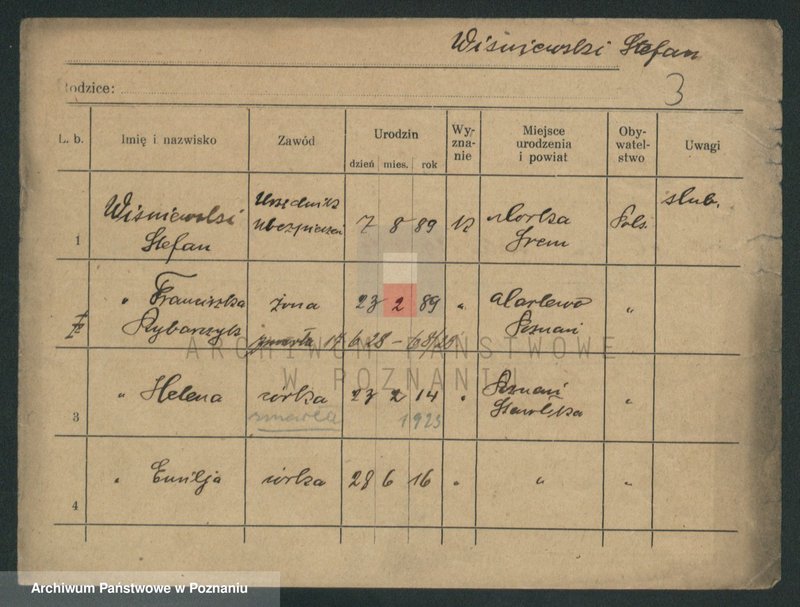 Wiśniewski Stefan
3
Rodzice:
L. b. Imię i nazwisko Zawód Urodzin Wyznanie Miejsce urodzenia i powiat Obywatelstwo Uwagi
dzień mies. rok
1 Wiśniewski Stefan Urzędnik ubezpieczeń 7 8 89 rk Śrem Pols. slub.
" Franciszka Rybarczyk żona 23 2 89 " Poznań "
zmarła 17 6 28 – 68/28
ARCHIWUM PAŃSTWOWE
W POZNANIU
3 " Helena córka 23 2 14 " Poznań "
zmarła 1923
4 " Emilja córka 28 6 16 " " "
Archiwum Państwowe w Poznaniu